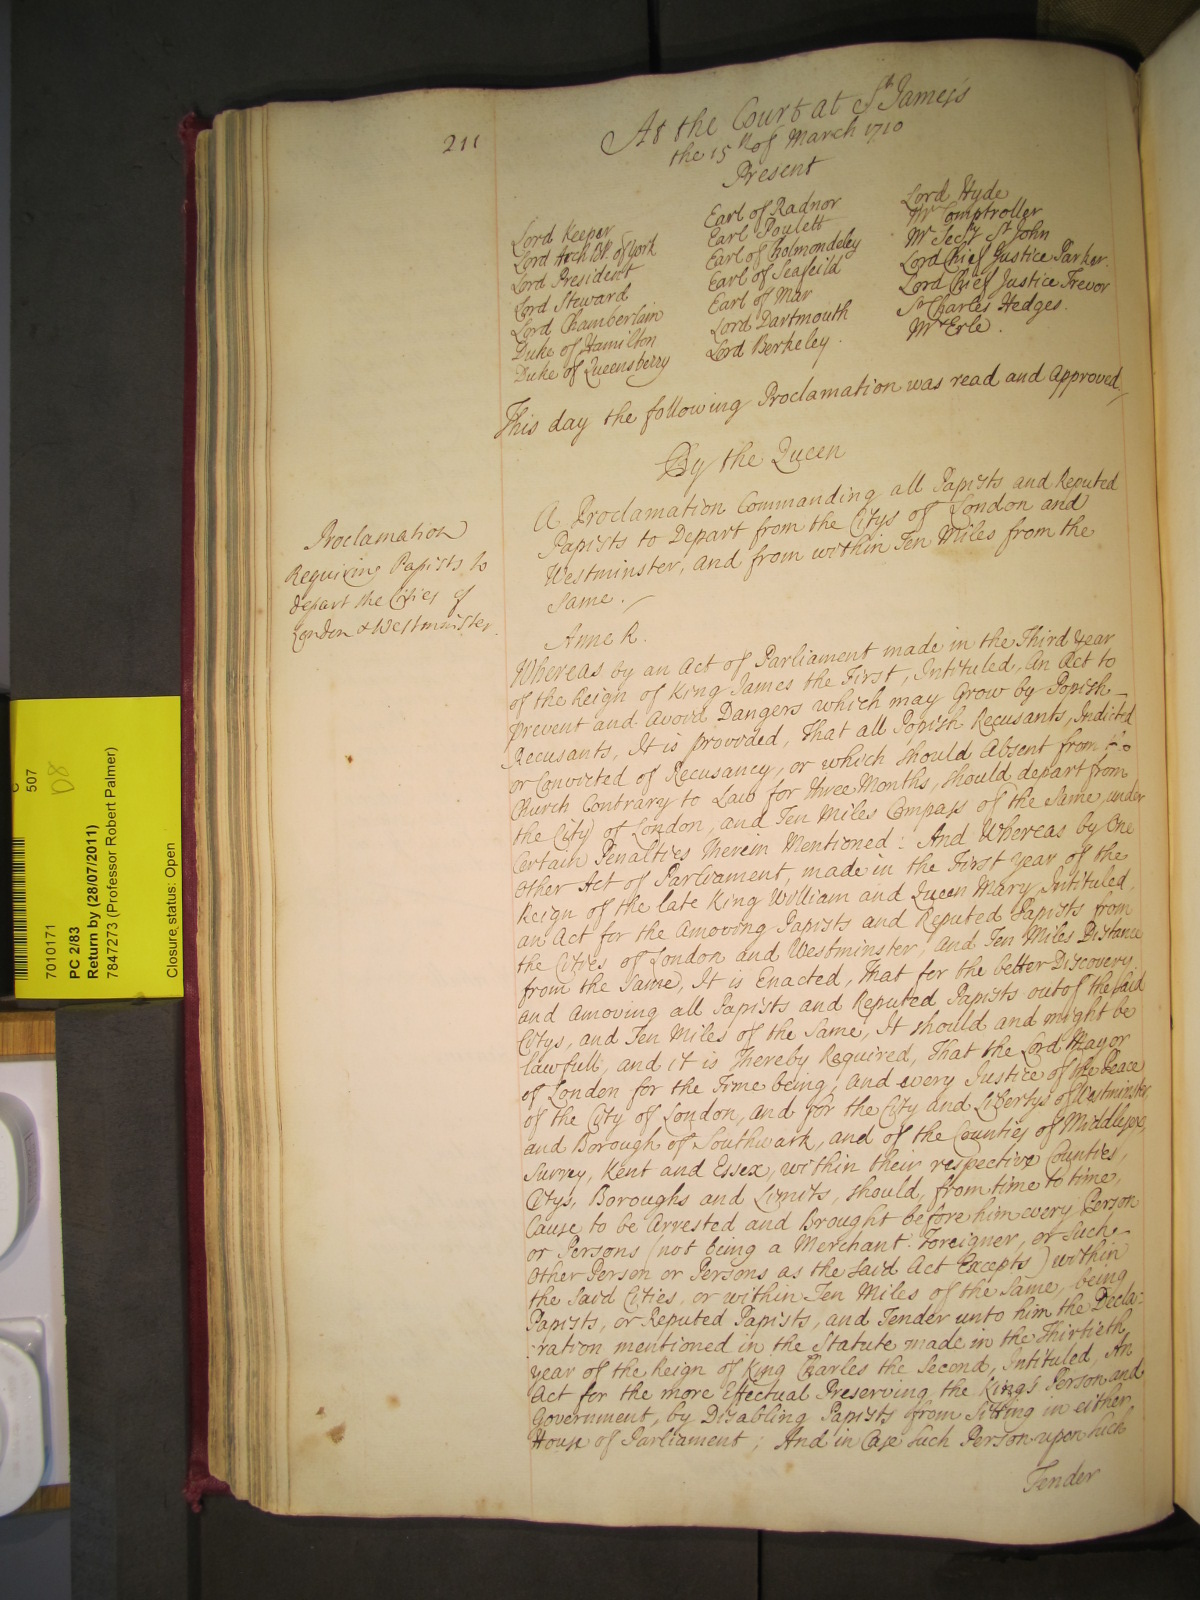 211
At the Court at St. James's
the 15th of March 1710
Present
Lord Keeper
Lord Arch BP. of York
Lord President
Lord Steward
Lord Chamberlain
Duke of Hamilton
Duke of Queensberry
Earl of Radnor
Earl Poulett
Earl of Cholmondeley
Earl of Seafeild
Earl of Mar
Lord Dartmouth
Lord Berkeley.
Lord Hyde
Mr Comptroller
Mr Secry St John
Lord Chief Justice Parker.
Lord Chief Justice Trevor
Sr Charles Hedges.
Mr Erle.
This day the following Proclamation was read and approved,
By the Queen
A Proclamation Commanding all Papists and Reputed
Papists to Depart from the Citys of London and
Westminster, and from within Ten Miles from the
Same.
Proclamation
Requiring Papists to
depart the Cities of
London & Westminster.
Anne R.
Whereas by an Act of Parliament made in the Third year
of the Reign of King James the First, Intituled, An Act to
prevent and avoid Dangers which may Grow by Popish
Recusants, It is provided, That all Popish Recusants, Indicted
or Convicted of Recusancy, or which should Absent from the
Church Contrary to Law for three Months, should depart from
the City of London, and Ten Miles Compass of the same, under
Certain Penalties therein Mentioned: And Whereas by One
other Act of Parliament, made in the First year of the
Reign of the late King William and Queen Mary, Intituled,
an Act for the Amoving Papists and Reputed Papists from
the Cities of London and Westminster, and Ten Miles Distance
from the Same, It is Enacted, That for the better Discovery
and Amoving all Papists and Reputed Papists out of the said
Citys, and Ten Miles of the Same, It should and might be
lawfull, and it is Thereby Required, That the Lord Mayor
of London for the Time being, and every Justice of the Peace
of the City of London, and for the City and Libertys of Westminster,
and Borough of Southwark, and of the Counties of Middlesex,
Surrey, Kent and Essex, within their respective Counties,
Citys, Boroughs and Limits, should, from time to time,
Cause to be Arrested and Brought before him every Person
or Persons (not being a Merchant Foreigner, or such
other Person or Persons as the said Act Excepts) within
the said Cities, or within Ten Miles of the Same, being
Papists, or Reputed Papists, and Tender unto him the Decla-
:ration mentioned in the Statute made in the Thirtieth
year of the Reign of King Charles the Second, Intituled, An
Act for the more Effectual Preserving the King's Person and
Government, by Disabling Papists from Sitting in either
House of Parliament; And in Case such Person upon such
Tender
507
D8
7010171
PC 2/83
Return by (28/07/2011)
7847273 (Professor Robert Palmer)
Closure status: Open